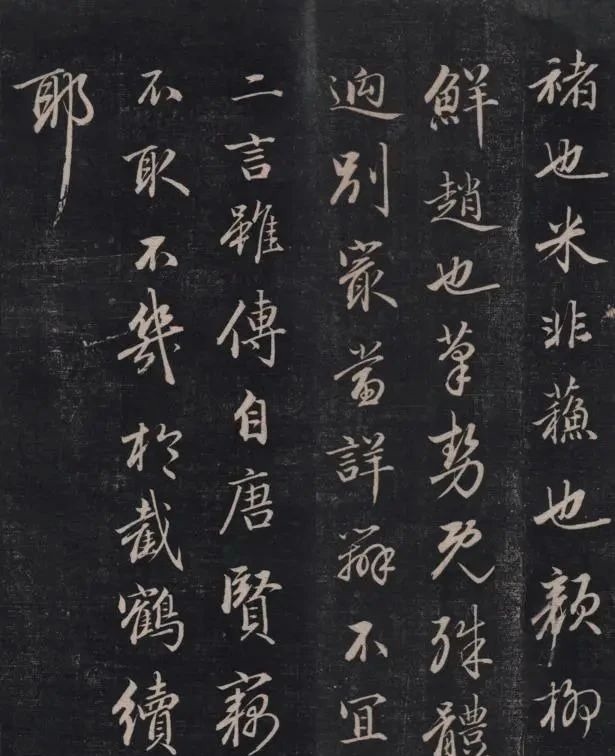 褚也米非蘓也顏柳
鮮趙也筆勢既殊體
迥別㝡當詳辨不宜
二言雖傳自唐賢竊
不取不幾於截鶴續
耶